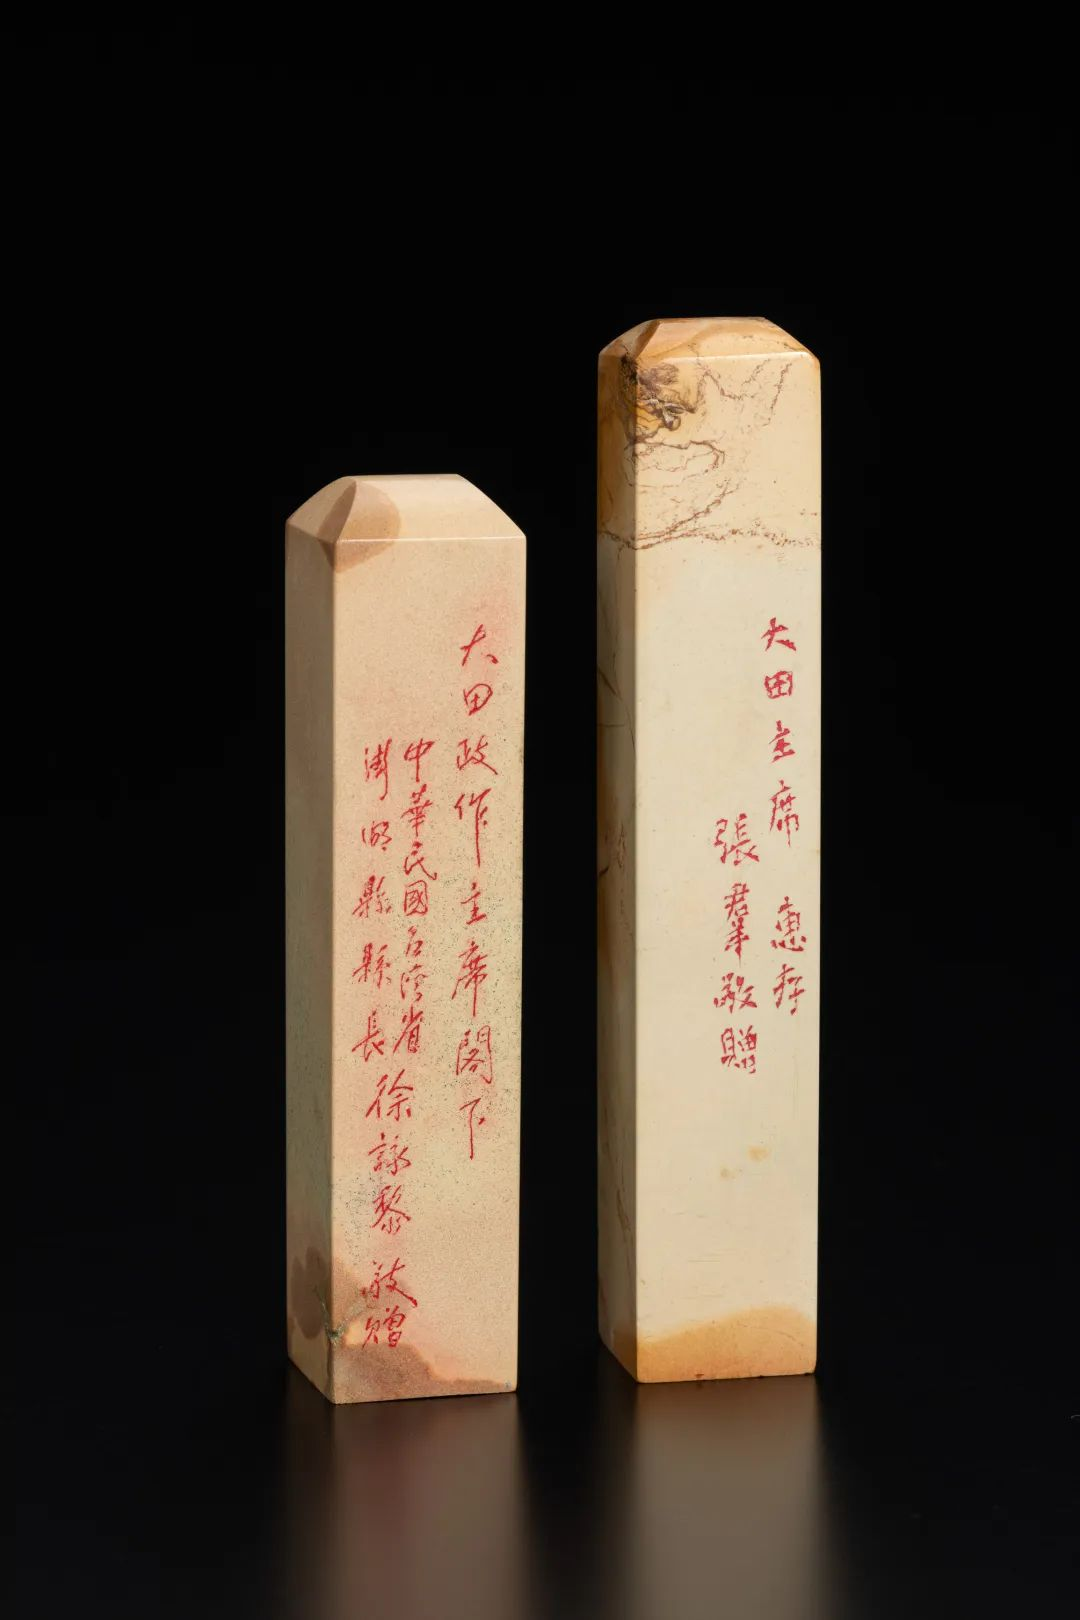 大田政作主席閣下
中華民國台灣省
澎湖縣縣長徐詠黎敬贈
大田主席 惠存
張羣敬贈